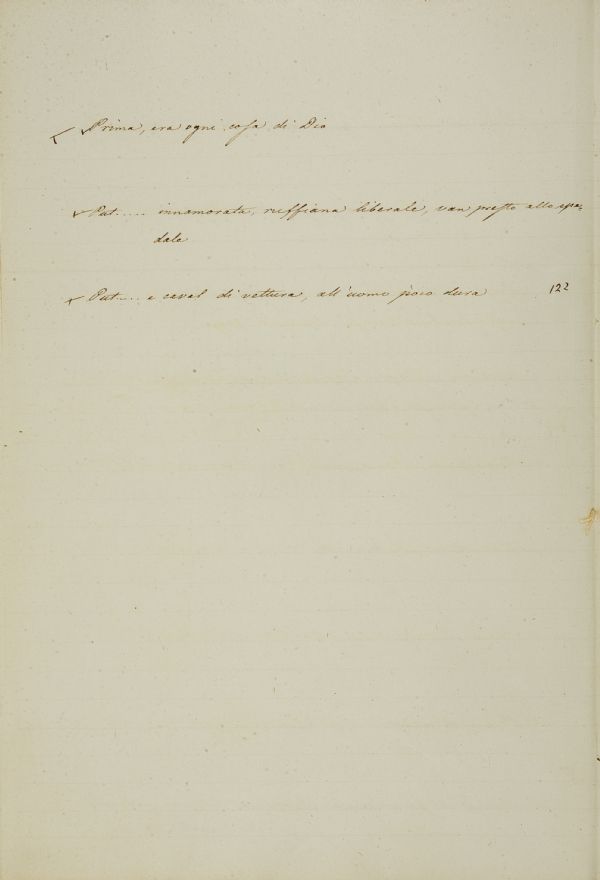 Prima, era ogni cosa di Dio
Put.... innamorata, ruffiana liberale, van presto allo spe-
dale
Put.... e caval di vettura, all'uomo poco dura 122